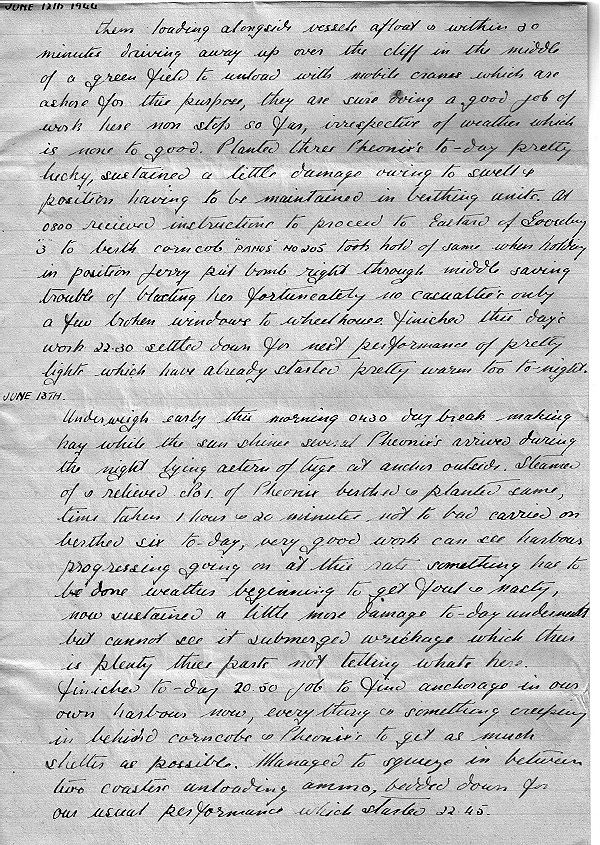 JUNE 12TH 1944
them loading alongside vessels afloat & within 30
minutes driving away up over the cliff in the middle
of a green field to unload with mobile cranes which are
ashore for this purpose, they are sure doing a good job of
work here non stop so far, irrespective of weather which
is none to good. Planted three Pheonix's to-day pretty
lucky, sustained a little damage owing to swell &
position having to be maintained in berthing units. At
0800 recieved instructions to proceed to Eastard of Gooseberry
3 to berth corncob No 205 took hold of same when holding
in position Jerry put bomb right through middle saving
trouble of blasting her fortuneately no casualties only
a few broken windows to wheelhouse. finished this day's
work 22.30 settled down for next performance of pretty
lights which have already started pretty warm too to-night.
JUNE 13TH.
Underweigh early this morning 0430 day break making
hay while the sun shines several Pheonix's arrived during
the night lying astern of tugs at anchor outside. Steamed
of & relieved of Pheonix berthed & planted same,
time taken 1 hour & 20 minutes not to bad carried on
berthed six to-day, very good work can see harbour
progressing going on at this rate something has to
be done weather beginning to get foul & nasty,
now sustained a little more damage to-day underneath
but cannot see it submerged wreckage which there
is plenty these parts not telling whats here.
finished to-day 20.50 job to find anchorage in our
own harbour now, everything & something creeping
in behind corncobs & Pheonix's to get as much
shelter as possible. Managed to squeeze in between
two coasters unloading ammo, bedded down for
our usual performance which started 22.45.